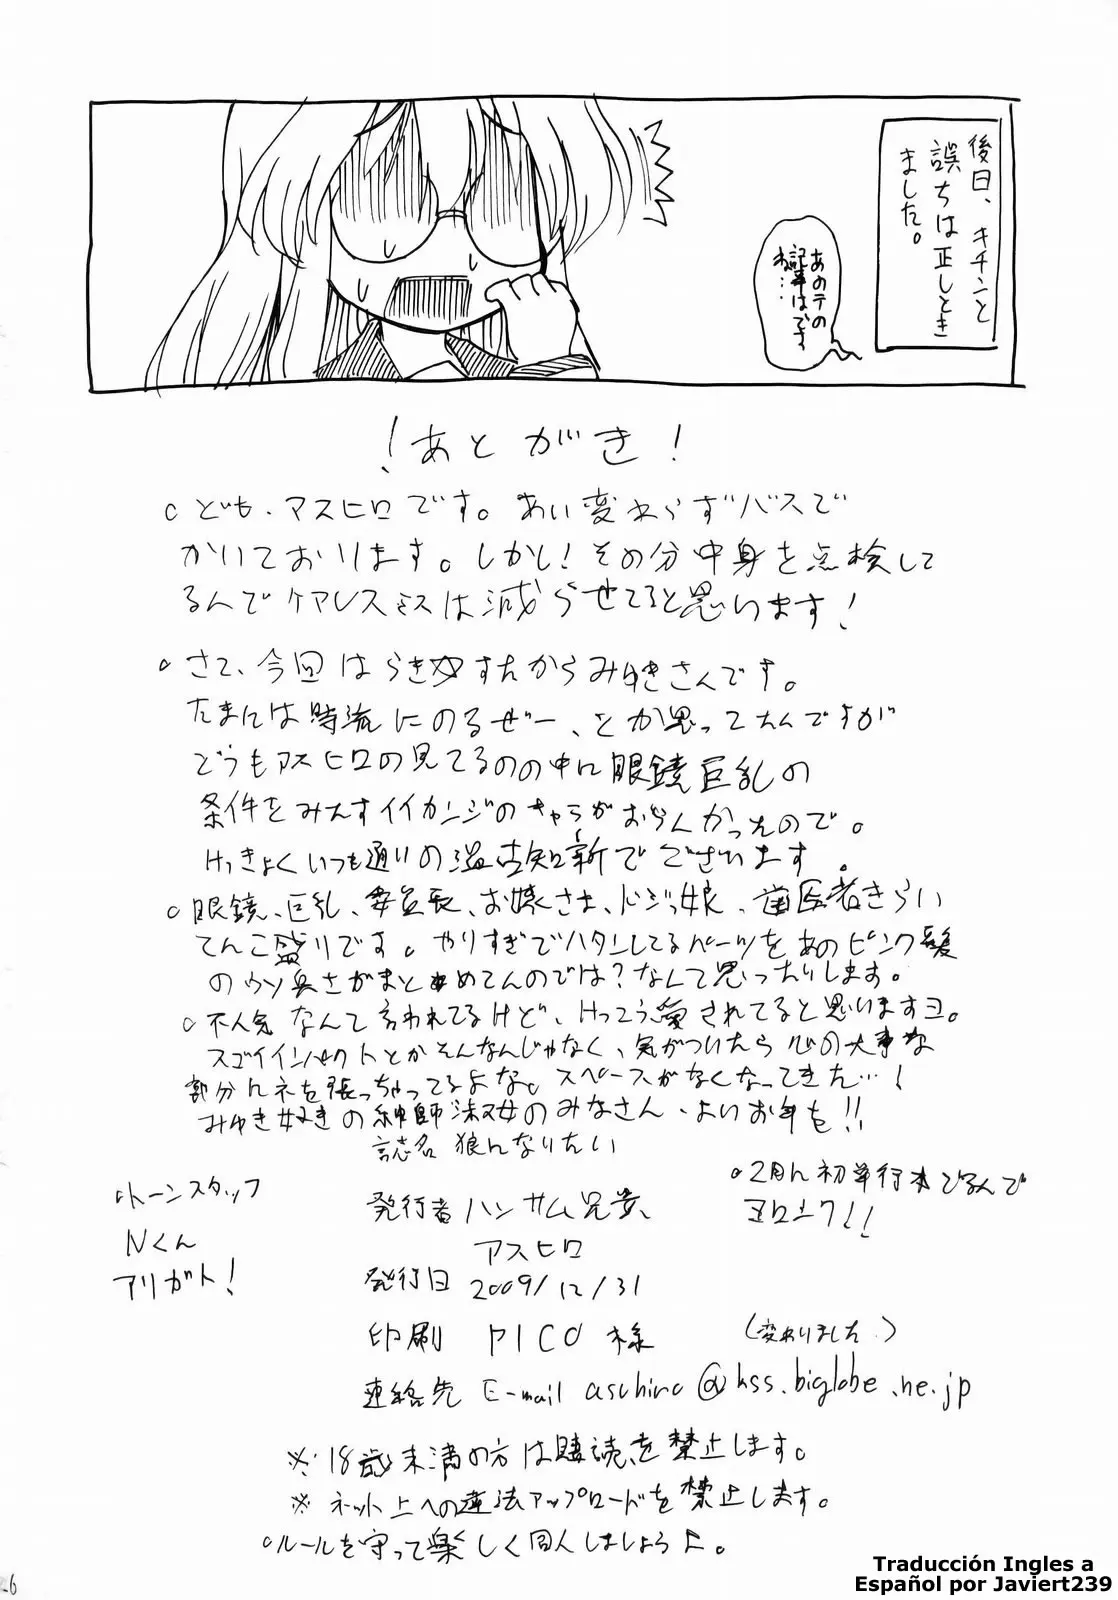 後日、キチンと
誤ちは正しとき
ました。
あのテの
記事はです
ね…
！あとがき！
○ども、アスヒロです。あい変わらずバスで
かいております。しかし！その分中身を点検して
るんでケアレスミスは減らせてると思います！
○さて、今回はらき☆すたからみゆきさんです。
たまには時流にのるぜー、とか思ってたんですが
どうもアスヒロの見てるのの中に眼鏡巨乳の
条件をみたすイイカンジのキャラがおらんかったので。
けっきょくいつも通りの温古知新でございます。
○眼鏡、巨乳、委員長、お嬢さま、ドジっ娘、歯医者きらい
てんこ盛りです。やりすぎでハタンしてるパーツをあのピンク髪
のウソ臭さがまとめてんのでは？なんて思ったりします。
○不人気なんて言われてるけど、けっこう愛されてると思いますヨ。
スゴイインパクトとかそんなんじゃなく、気がついたら心の大事な
部分にネを張っちゃってるよな。スペースがなくなってきた…！
みゆき好きの紳師淑女のみなさん、よいお年を！！
誌名 狼になりたい
○トーンスタッフ
Nくん
アリガト！
発行者 ハンサム兄貴、
アスヒロ
発行日 2009/12/31
○2月に初単行本でるんで
ヨロシク！！
印刷 PICO 様
(変わりました。)
連絡先 E-mail asuhiro@kss.biglobe.ne.jp
※18歳未満の方は購読を禁止します。
※ネット上への違法アップロードを禁止します。
○ルールを守って楽しく同人しましょうよ。
Traducción Ingles a
Español por Javiert239